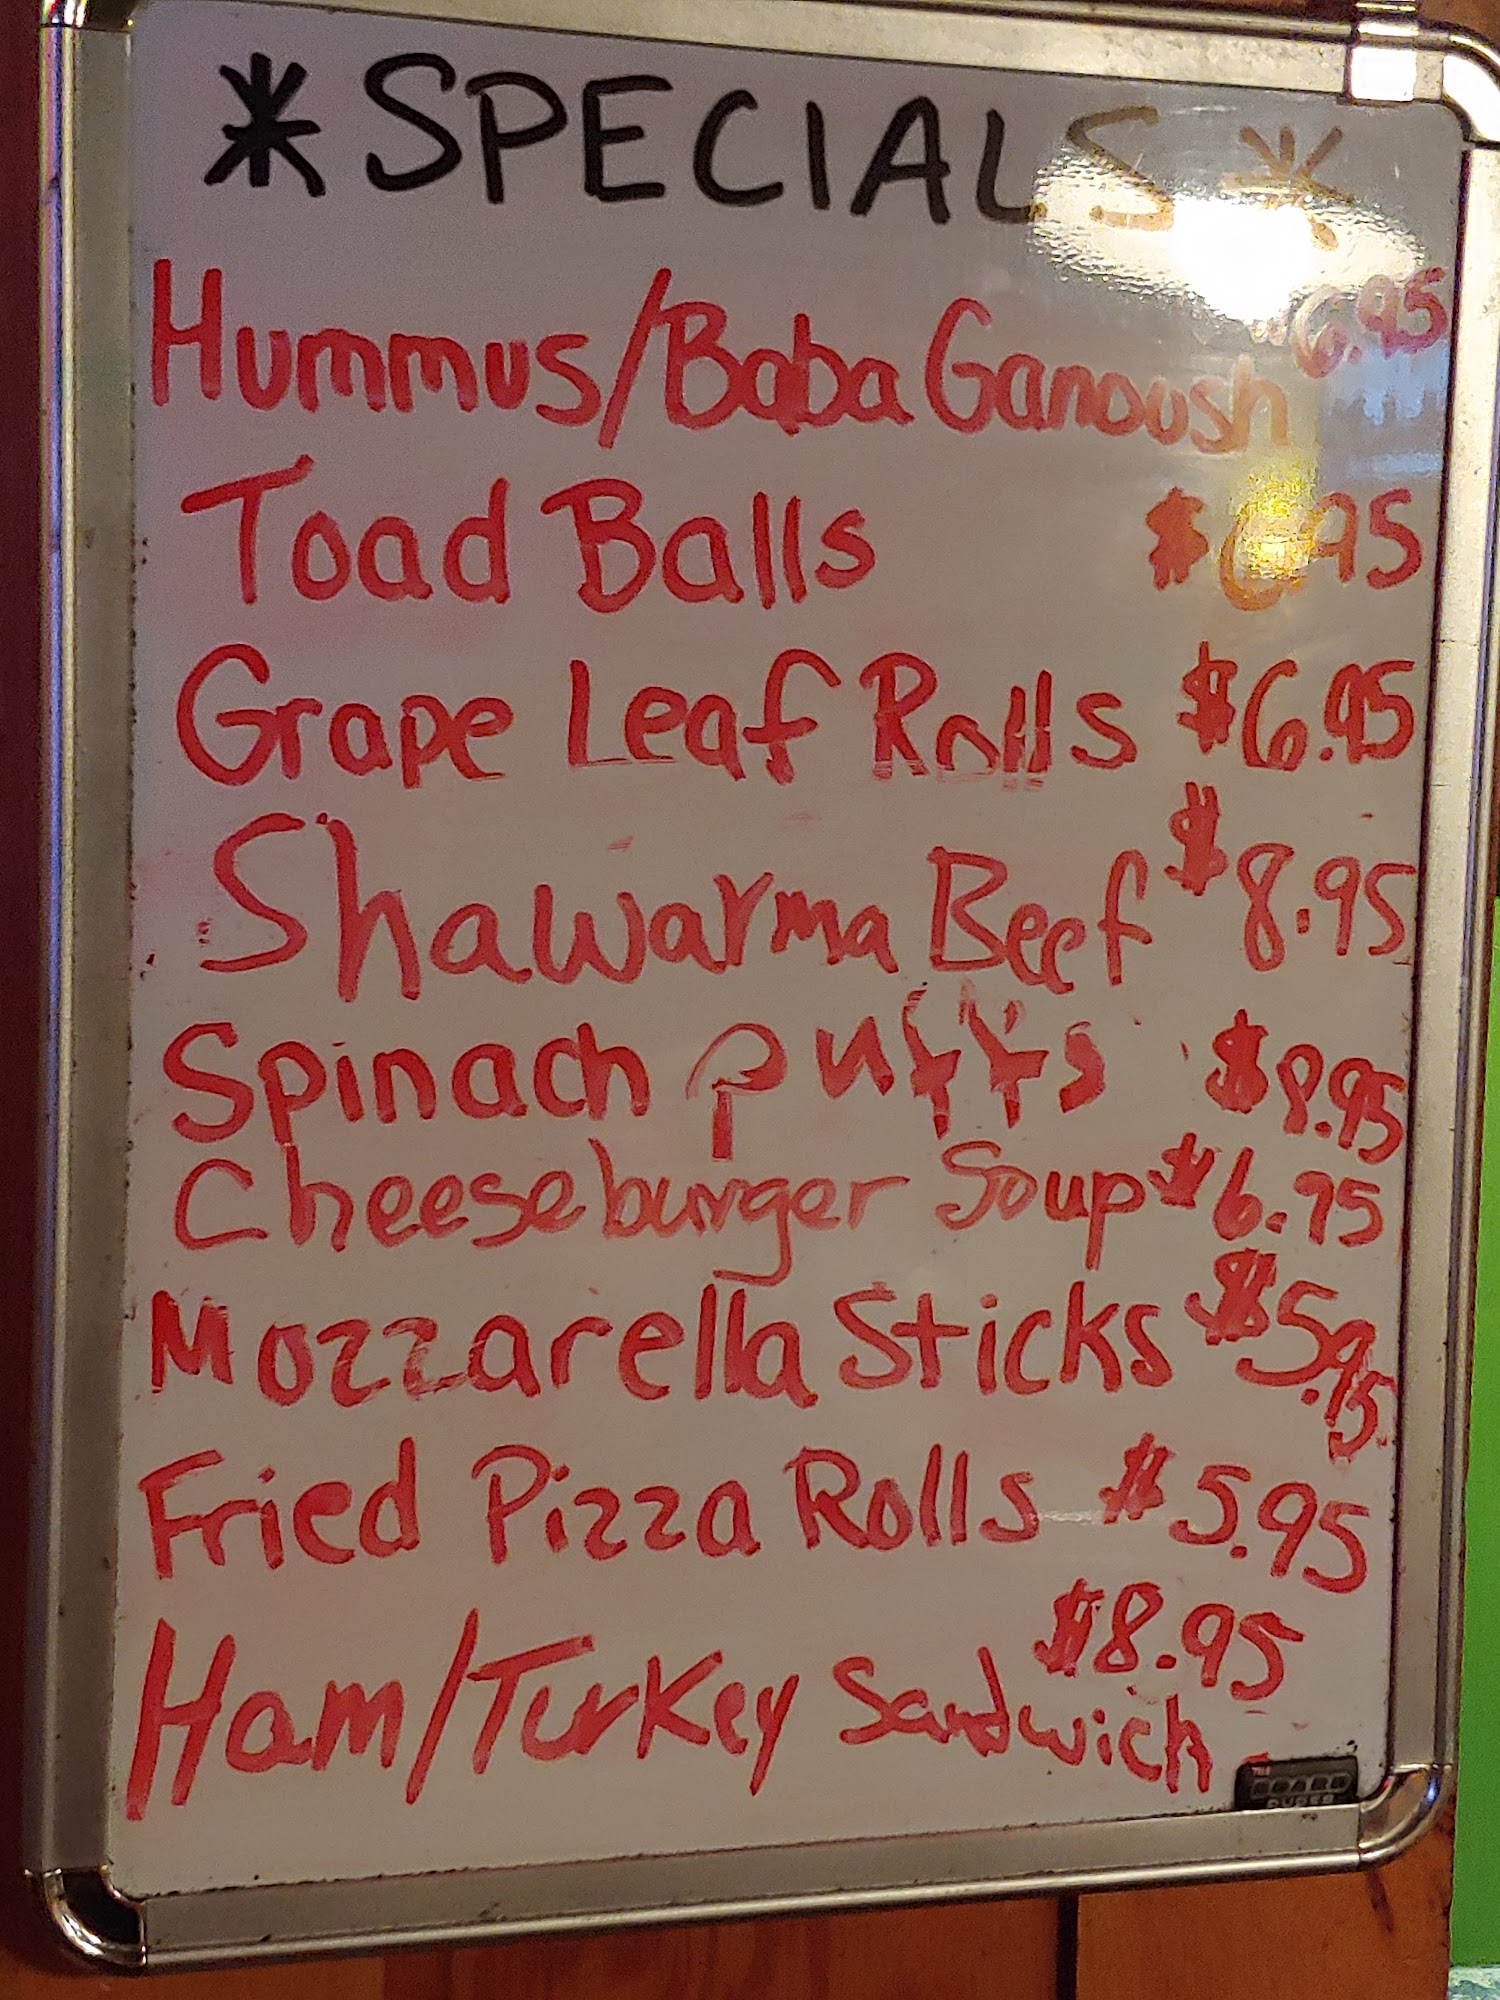 *SPECIALS*
Hummus/Baba Ganoush $6.95
Toad Balls $6.95
Grape Leaf Rolls $6.95
Shawarma Beef $8.95
Spinach puffs $8.95
Cheeseburger Soup $6.95
Mozzarella Sticks $5.95
Fried Pizza Rolls $5.95
Ham/Turkey Sandwich $8.95
THE
BOARD
DUDES